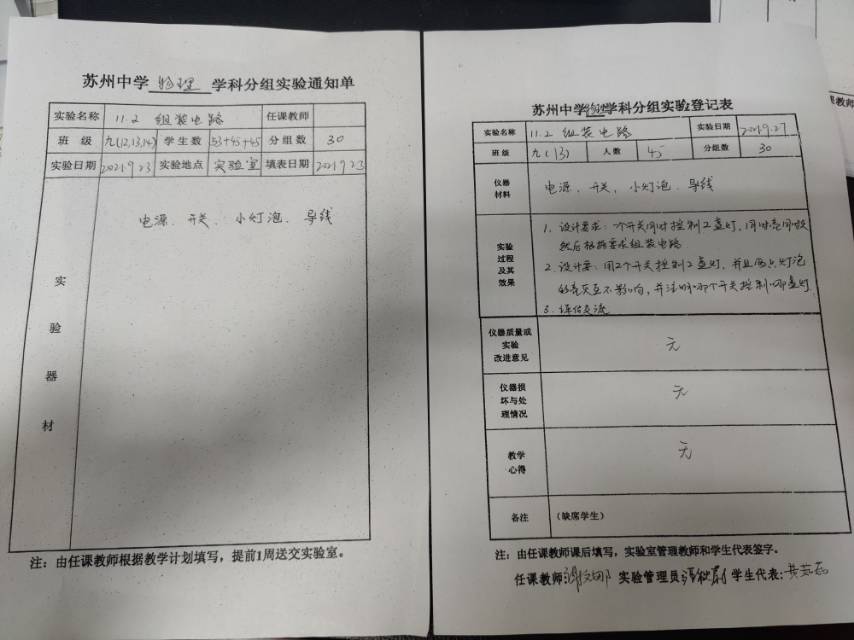 苏州中学 物理 学科分组实验通知单
实验名称 11.2 组装电路 任课教师
班 级 九(12,13,14) 学生数 53+45+45 分组数 30
实验日期 2021.9.23 实验地点 实验室 填表日期 2021.9.23
实验器材
电源、开关、小灯泡、导线
注：由任课教师根据教学计划填写，提前1周送交实验室。
苏州中学物理学科分组实验登记表
实验名称 11.2 组装电路 实验日期 2021.9.27
班级 九(13) 人数 45 分组数 30
仪器材料 电源、开关、小灯泡、导线
实验过程及其效果
1. 设计要求：一个开关同时控制2盏灯，同时亮同时灭
然后根据要求组装电路
2. 设计要：用2个开关控制2盏灯，并且两只灯泡
的亮灭互不影响，并注明哪个开关控制哪盏灯
3. 评估交流
仪器质量或实验改进意见 无
仪器损坏与处理情况 无
教学心得 无
备注 （缺席学生）
注：由任课教师课后填写，实验室管理教师和学生代表签字。
任课教师: 实验管理员 学生代表: